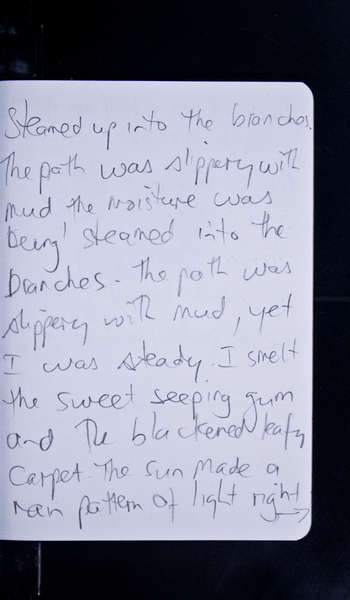 Steamed up into the branches.
The path was slippery with
mud the moisture was
being steamed into the
branches. The path was
slippery with mud, yet
I was steady. I smelt
the sweet seeping gum
and the blackened leafy
carpet. The sun made a
pattern of light right →